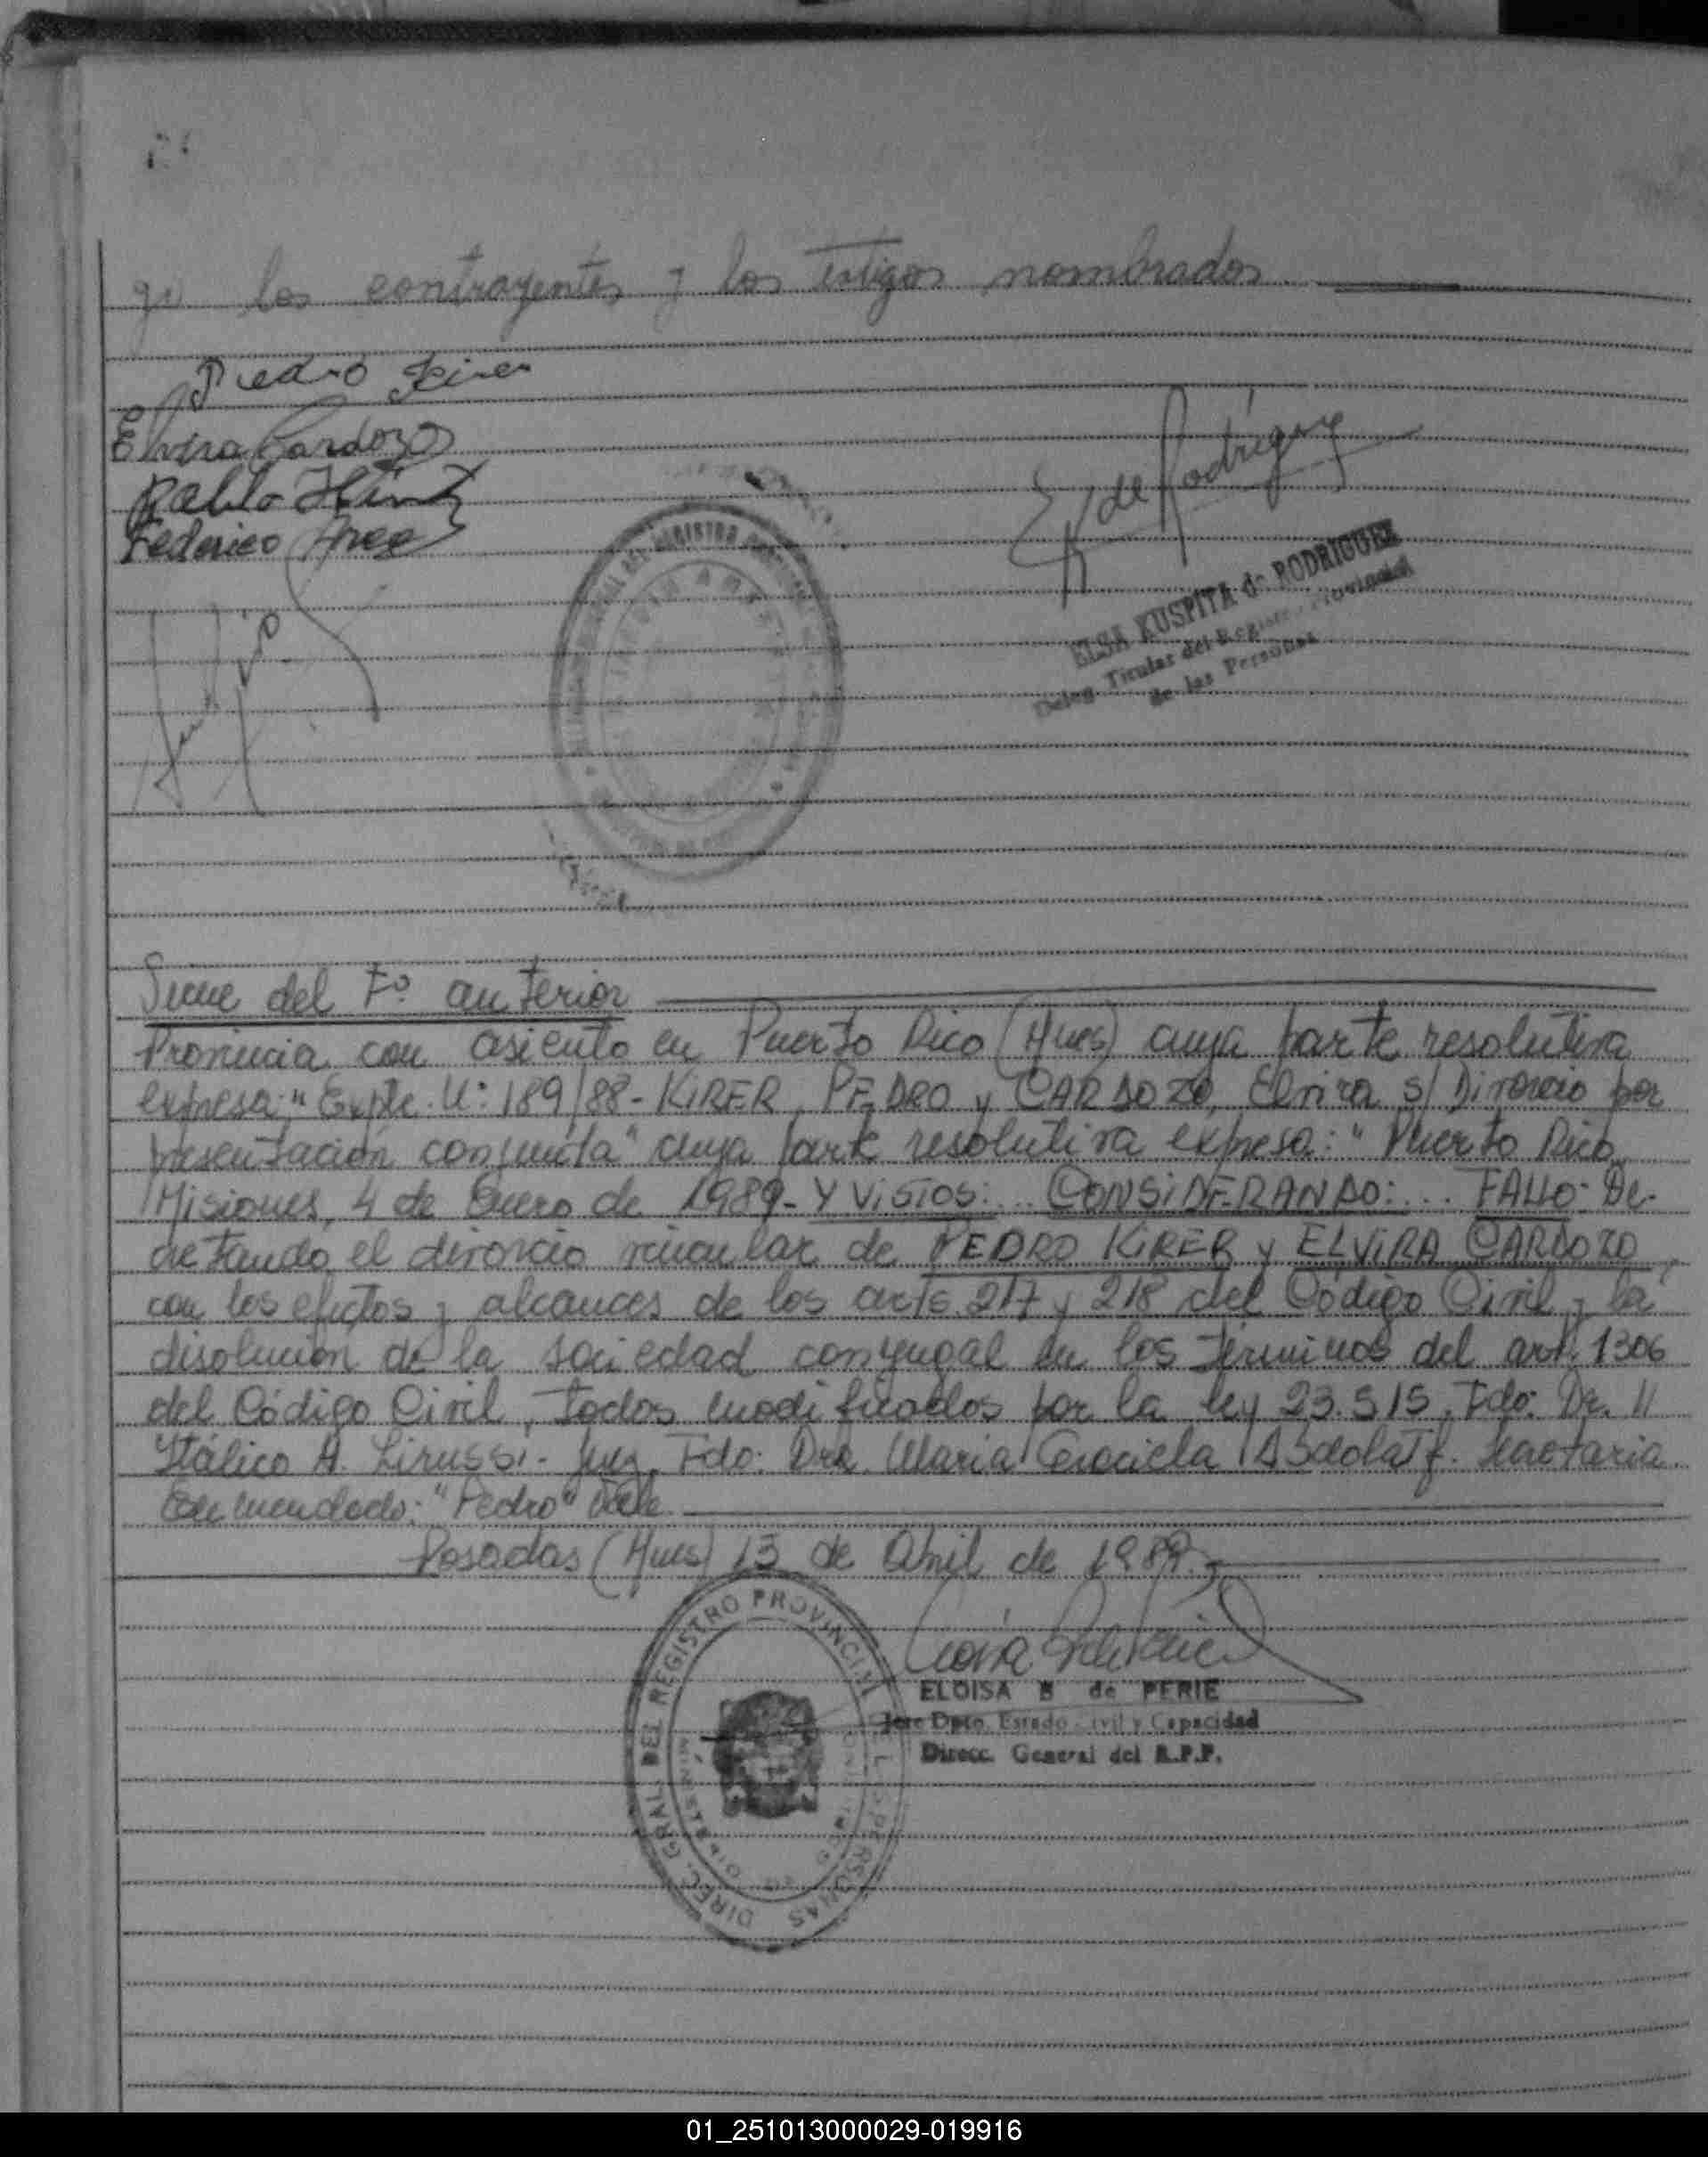 los contrayentes y los testigos nombrados
Pedro Kirer
Elvira Cardozo
Pablo
Federico
E de Rodríguez
ELSA KUSPITA de RODRIGUEZ
Deleg. Titular del Registro Provincial
de las Personas
Sigue del Fº anterior
Provincia con asiento en Puerto Rico (Mnes) cuya parte resolutiva
expresa: "Expte. Nº 189/88 - KIRER, PEDRO y CARDOZO, Elvira s/ Divorcio por
presentación conjunta" cuya parte resolutiva expresa: "Puerto Rico,
Misiones, 4 de Enero de 1989 - Y VISTOS: .. CONSIDERANDO: ... FALLO: De-
cretando el divorcio vincular de PEDRO KIRER y ELVIRA CARDOZO,
con los efectos y alcances de los arts 217 y 218 del Código Civil y la
disolución de la sociedad conyugal en los términos del art. 1306
del Código Civil, todos modificados por la ley 23.515. Fdo: Dr.
Itálico A. Lirussi - Juez. Fdo: Dra. Maria Graciela Secretaria.
Enmendado: "Pedro" vale
Posadas (Mnes) 13 de Abril de 1989.-
DIREC. GRAL. DEL REGISTRO PROVINCIAL PERSONAS
MINISTERIO
ELOISA B de PERIE
Jefe Dpto. Estado Civil y Capacidad
Direcc. General del R.P.P.
01_251013000029-019916